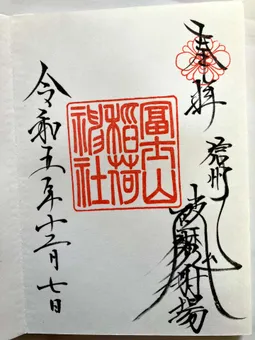 奉拝
信州
冨士山
稲荷
神社
令和五年十二月七日